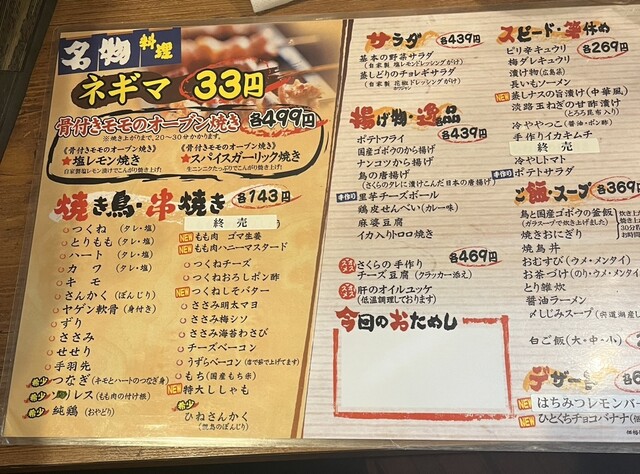 名物料理
ネギマ 33円
骨付きモモのオーブン焼き 各499円
※焼き上がりまで、20~30分かかります。
《骨付きモモのオーブン焼き》
★塩レモン焼き
自家製塩レモン漬けでこんがり焼き上げ
《骨付きモモのオーブン焼き》
★スパイスガーリック焼き
生ニンニクたっぷりでこんがり焼き上げ
焼き鳥・串焼き 各143円
つくね (タレ・塩)
とりもも (タレ・塩)
ハート (タレ・塩)
カワ (タレ・塩)
キモ
さんかく (ぼんじり)
ヤゲン軟骨 (身付き)
ずり
ささみ
せせり
手羽先
希少 つなぎ (キモとハートのつなぎ身)
希少 ソリレス (もも肉の付け根)
希少 純鶏 (おやどり)
終売
NEW もも肉 ゴマ生姜
NEW もも肉ハニーマスタード
つくねチーズ
つくねおろしポン酢
NEW つくねしそバター
ささみ明太マヨ
ささみ梅シソ
ささみ海苔わさび
チーズベーコン
うずらベーコン (店で茹で上げてます)
もち (国産もち米)
NEW 特大ししゃも
希少 ひねさんかく
(親鳥のぼんじり)
サラダ 各439円
基本の野菜サラダ
(自家製 塩レモンドレッシングがけ)
蒸しどりのチョレギサラダ
(自家製 花椒ドレッシングがけ)
揚げ物・逸品 各439円
ポテトフライ
国産ゴボウのから揚げ
ナンコツから揚げ
鳥の唐揚げ
(さくらのタレに漬けこんだ日本の唐揚げ)
手作り 里芋チーズボール
鶏皮せんべい (カレー味)
麻婆豆腐
イカ入りトロロ焼き
各469円
さくらの手作り
チーズ豆腐 (クラッカー添え)
肝のオイルユッケ
(低温調理しております)
今回のおためし
スピード・箸休め
各269円
ピリ辛キュウリ
梅ダレキュウリ
漬け物 (広島菜)
長いもソーメン
NEW 蒸しナスの旨漬け (中華風)
淡路玉ねぎの甘酢漬け
(とろろ昆布入り)
冷ややっこ (醤油・ポン酢)
手作りイカキムチ
終売
冷やしトマト
手作り ポテトサラダ
ご飯・スープ 各369
鳥と国産ゴボウの釜飯
(ガラスープで炊き上げました)
炊き上
30分
お時間
焼きおにぎり
焼鳥丼
おむすび (ウメ・メンタイ)
お茶づけ (のり・ウメ・メンタイ)
とり雑炊
醤油ラーメン
〆しじみスープ (宍道湖産し
白ご飯 (大・中・小)
デザート
NEW はちみつレモンバー
NEW ひとくちチョコバナナ